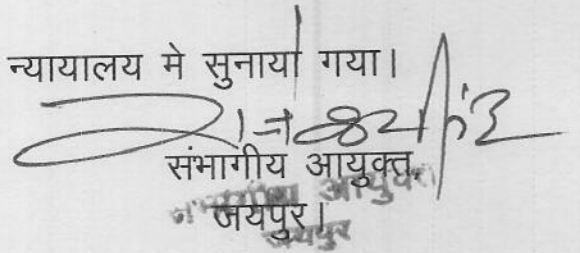 न्यायालय मे सुनाया गया।
संभागीय आयुक्त,
जयपुर।
आयुक्त
जयपुर